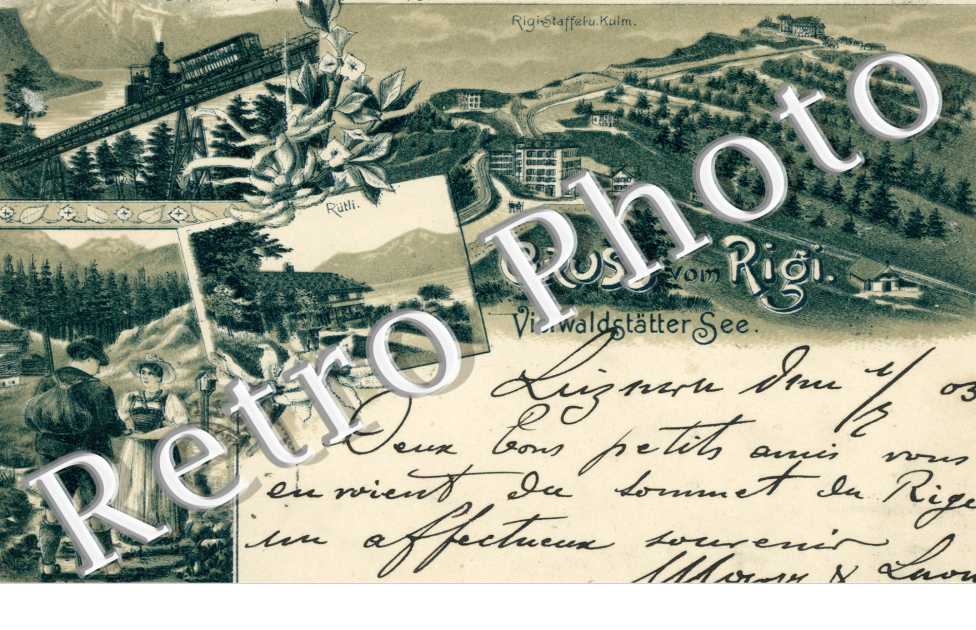 Rigi-Staffel u. Kulm.
Rütli.
Gruss vom Rigi.
Vierwaldstätter See.
Retro Photo
Luzern den 03
Deux bons petits amis vous
envoient du sommet du Rigi
un affectueux souvenir
&